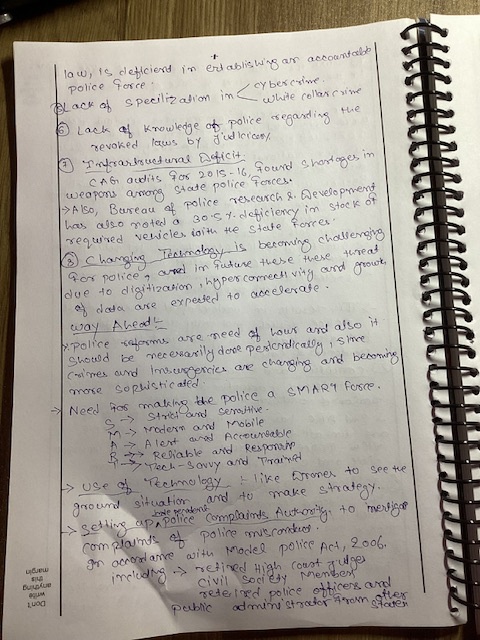 law, is deficient in establishing an accountable
police force.
⑤ Lack of specilization in < cybercrime.
white collar crime
⑥ Lack of knowledge of police regarding the
revoked laws by judiciary.
⑦ Infrastructural Deficit
CAG audits for 2015-16, found shortages in
weapons among state police forces.
→ Also, Bureau of police research & Development
has also noted a 30.5% deficiency in stock of
required vehicles with the state forces.
⑧ Changing Technology is becoming challenging
for police, and in future these these threat
due to digitization, hyperconnectivity and growth
of data are expected to accelerate.
way Ahead :-
→ Police reforms are need of hour and also it
should be necessarily done periodically, since
crimes and insurgencies are changing and becoming
more sophisticated.
→ Need for making the police a SMART force.
S → Strict and sensitive.
M → Modern and Mobile
A → Alert and Accountable
R → Reliable and Responsive
T → Tech-Savvy and Trained
→ Use of Technology :- like Drones to see the
ground situation and to make strategy.
→ Setting up a independent Police Complaints Authority. to
complaints of police misconduct.
In accordance with Model police Act, 2006.
including → retired High court judges
Civil Society Members
retired police officers and
public administrator from other states
Don't
write
anything
this
margin